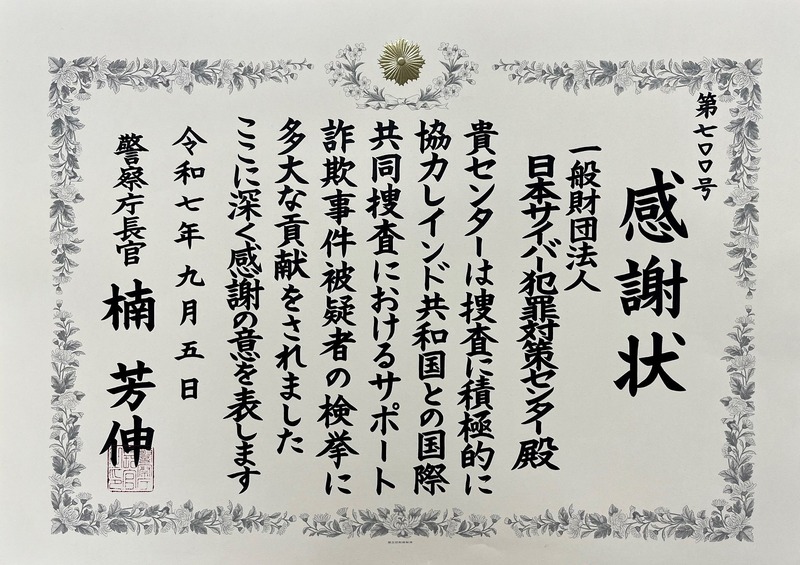 第七〇〇号
感謝状
一般財団法人
日本サイバー犯罪対策センター殿
貴センターは捜査に積極的に
協力しインド共和国との国際
共同捜査におけるサポート
詐欺事件被疑者の検挙に
多大な貢献をされました
ここに深く感謝の意を表します
令和七年九月五日
警察庁長官 楠 芳伸